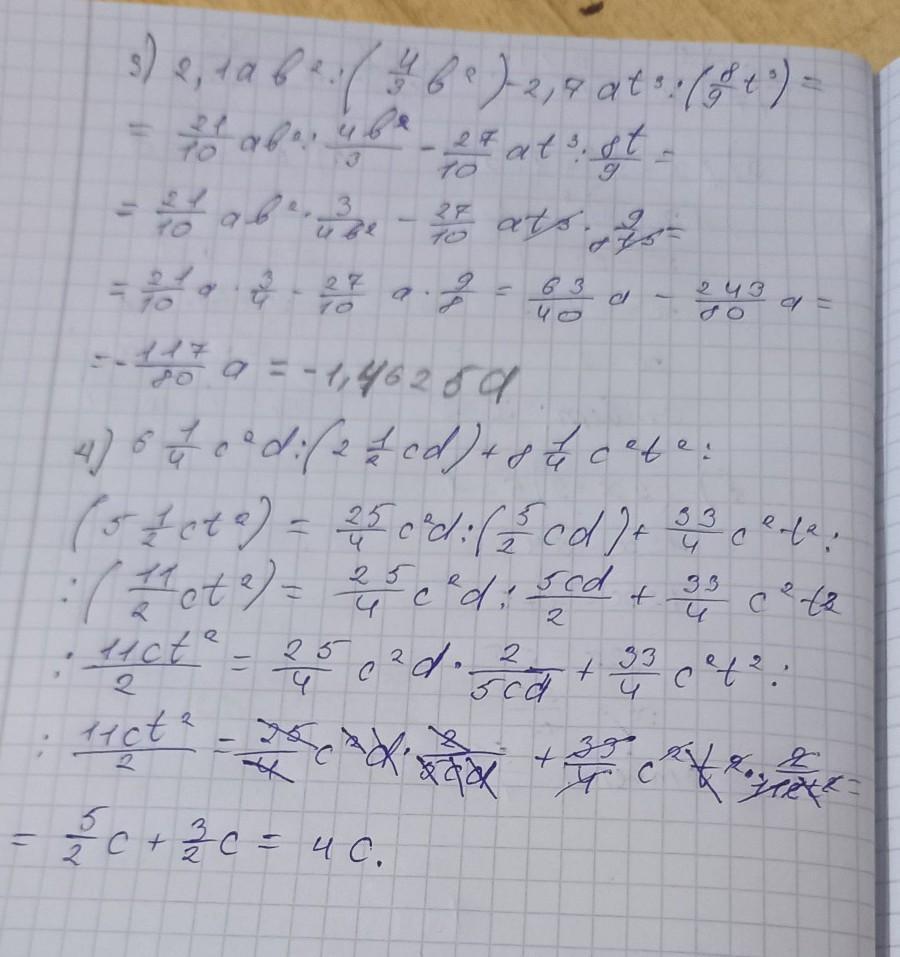 3) 2,1ab²:(4/3 b²)-2,7at³:(8/9 t³)=
= 21/10 ab²: 4b²/3 - 27/10 at³: 8t/9 =
= 21/10 ab² · 3/4b² - 27/10 at³ · 9/8t³ =
= 21/10 a · 3/4 - 27/10 a · 9/8 = 63/40 a - 243/80 a =
= - 117/80 a = -1,4625a
4) 6 1/4 c²d:(2 1/2 cd)+8 1/4 c²t²:
(5 1/2 ct²) = 25/4 c²d:(5/2 cd)+ 33/4 c²t²:
:(11/2 ct²)= 25/4 c²d: 5cd/2 + 33/4 c²t2
: 11ct²/2 = 25/4 c²d · 2/5cd + 33/4 c²t²:
: 11ct²/2 = 25/4 c²d · 2/2cd + 33/4 c²t² · 2/11ct² =
= 5/2 c + 3/2 c = 4c.